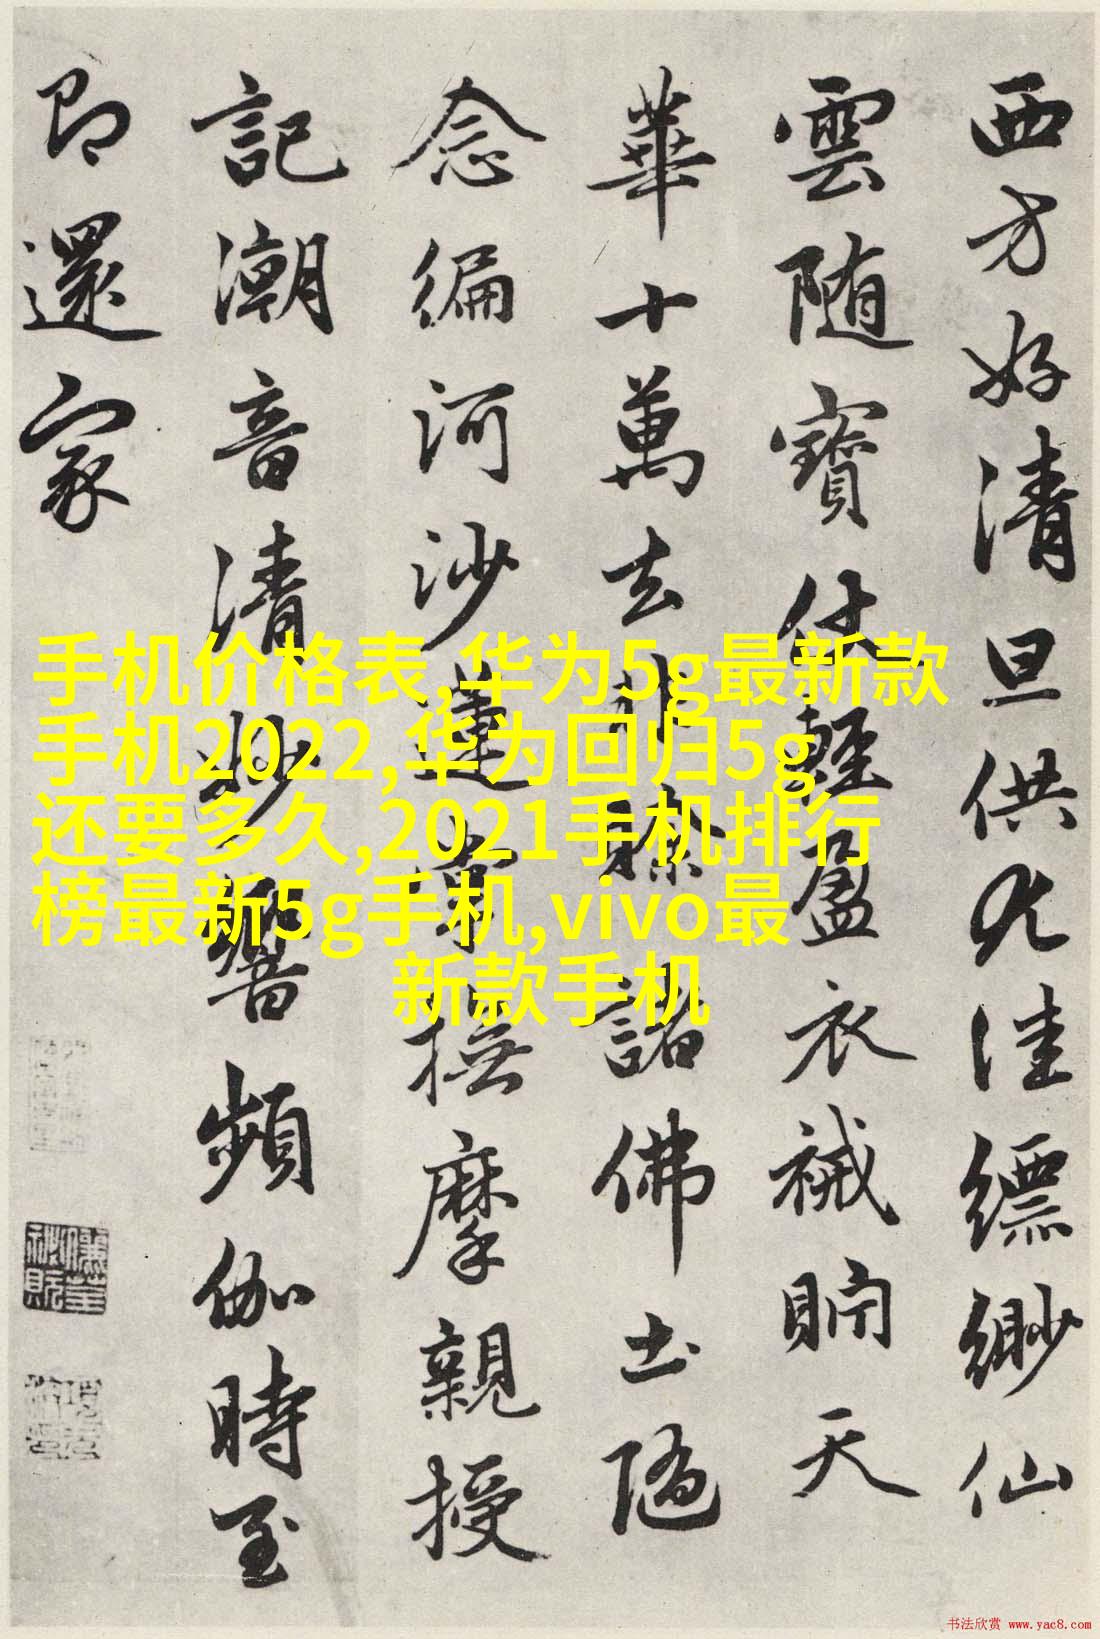 西方好清旦供尤佳縹緲仙
雲随寶仗輕盈衣裓貯天
華十萬去非賖諸佛土隨
念編河沙蓮掌撫摩親授
記潮音清妙響頻伽時至
即還家
手机价格表,华为5g最新款
手机2022,华为回归5g
还要多久,2021手机排行
榜最新5g手机,vivo最
新款手机
书法欣赏 www.yac8.com